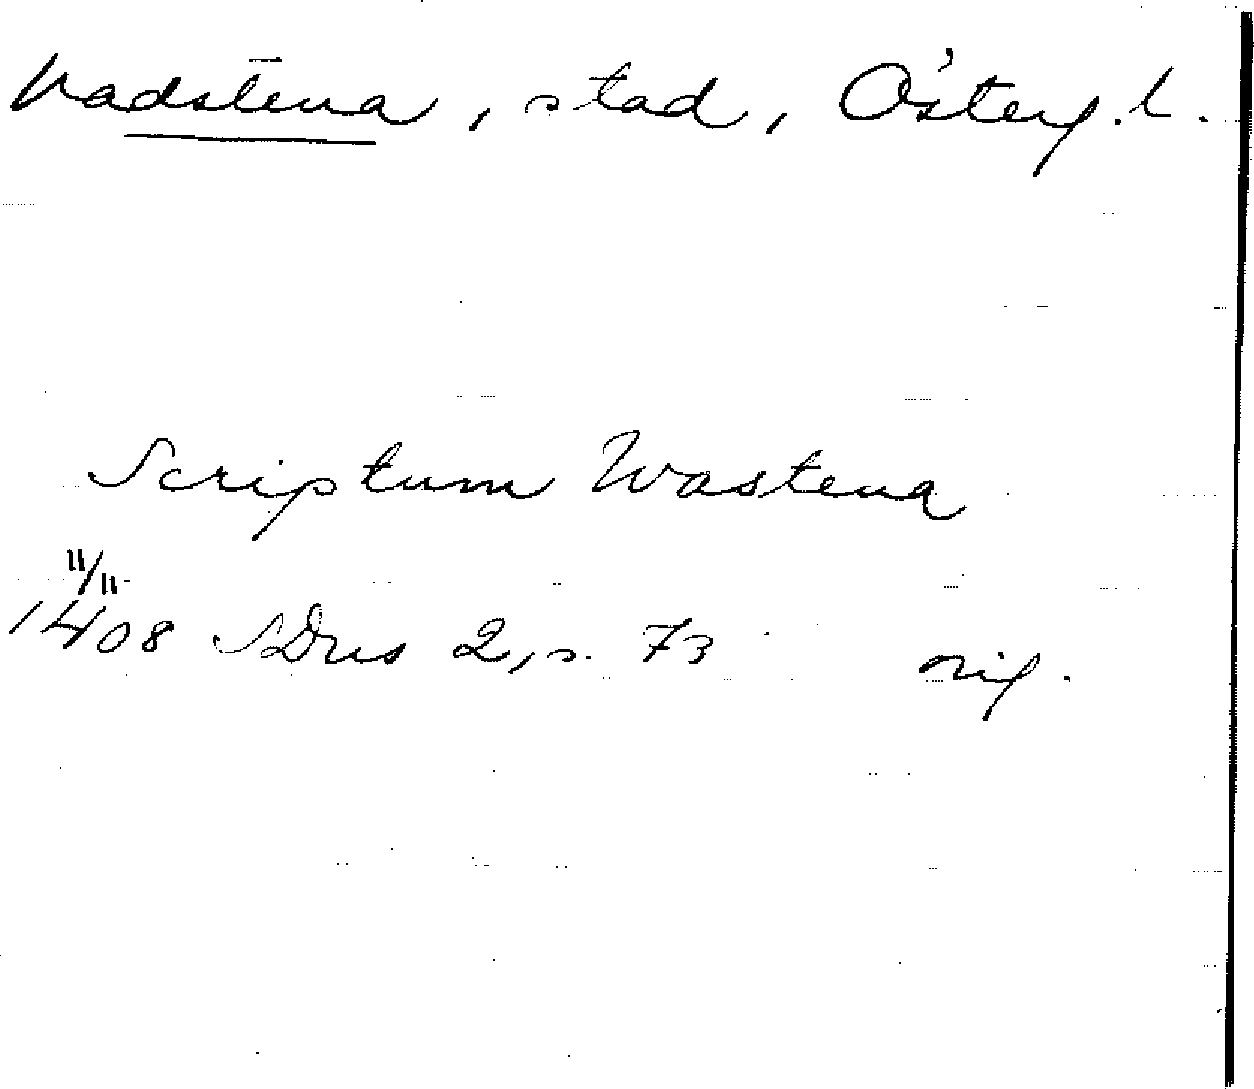 Vadstena, stad, Österg. l.
Scriptum Wastena
11/11
1408 SDns 2, s. 73 orig.